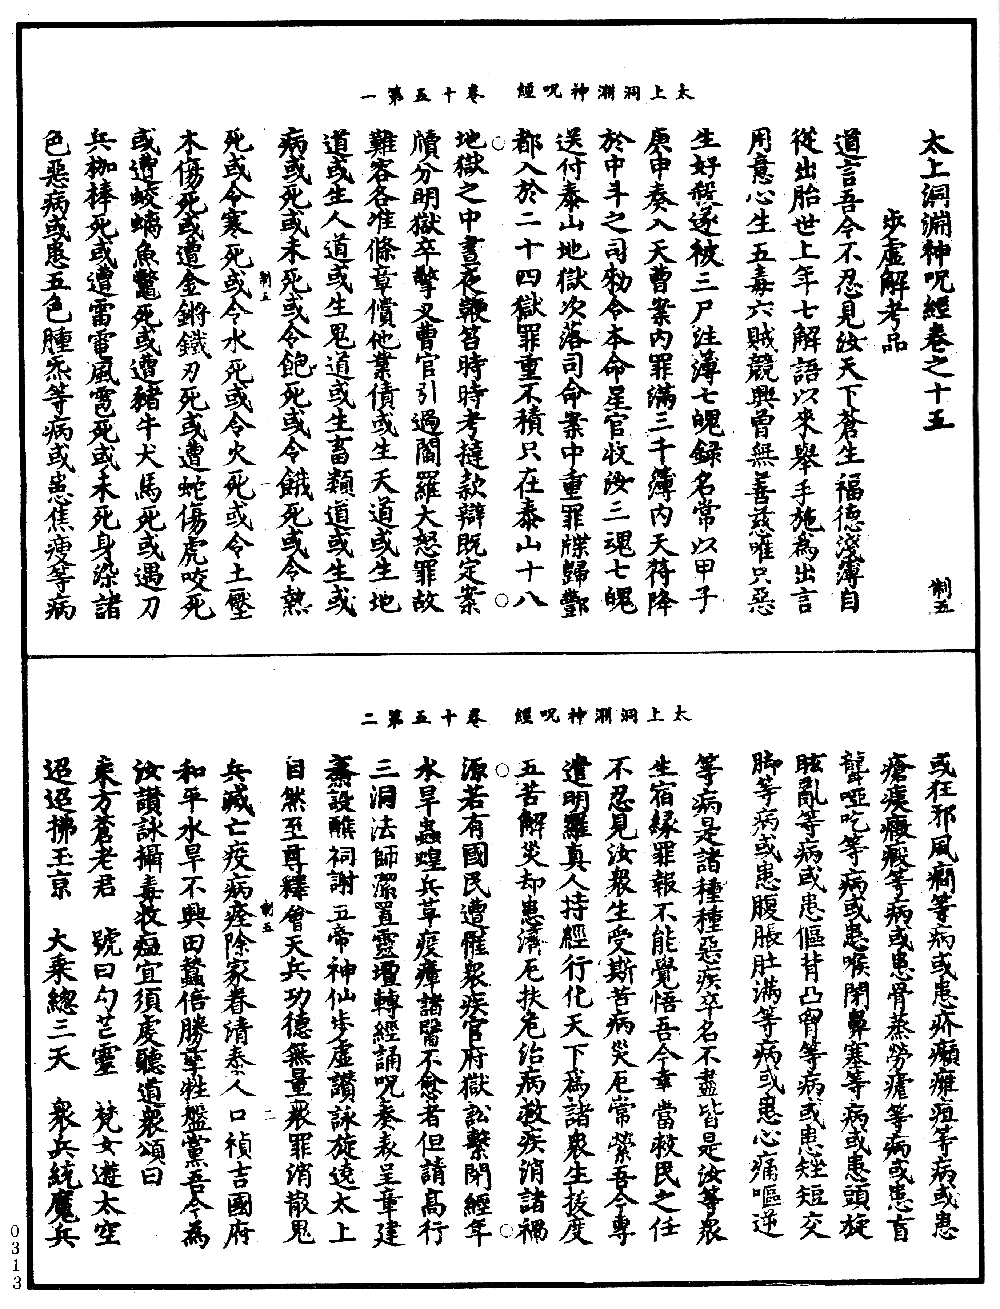 太上洞淵神呪經　卷十五第一
太上洞淵神呪經卷之十五
制五
步虛解考品
道言吾今不忍見汝天下蒼生福德淺薄自
從出胎世上年七解語以來舉手施為出言
用意心生五毒六賊競興曾無善慈唯只惡
生好煞遂被三尸注薄七魄録名常以甲子
庚申奏入天曹案內罪滿三千薄內天符降
於中斗之司勑令本命星官收汝三魂七魄
送付泰山地獄次落司命案中重罪牒歸酆
都入於二十四獄罪重不積只在泰山十八
地獄之中晝夜鞭笞時時考撻款辯既定案
牘分明獄卒擎叉曹官引過閻羅大怒罪故
難容各准條章償他業債或生天道或生地
道或生人道或生鬼道或生畜類道或生或
病或死或未死或令飽死或令餓死或令熱
制五　一
死或令寒死或令水死或令火死或令土壓
木傷死或遭金鏘鐵刃死或遭蛇傷虎咬死
或遭蛟螭魚鼈死或遭豬牛犬馬死或遇刀
兵枷棒死或遭雷電風雹死或未死身染諸
色惡病或患五色腫炁等病或患焦瘦等病
太上洞淵神呪經　卷十五第二
或狂邪風癇等病或患疥癩癰疽等病或患
瘡痍癭癜等病或患骨蒸勞瘧等病或患盲
聾啞吃等病或患喉閉鼻塞等病或患頭旋
眩亂等病或患傴背凸胷等病或患矬短交
脚等病或患腹脹肚滿等病或患心痛嘔逆
等病是諸種種惡疾卒名不盡皆是汝等衆
生宿緣罪報不能覺悟吾今幸當救民之任
不忍見汝衆生受斯苦病災厄常縈吾今專
遣明羅真人持經行化天下為諸衆生拔度
五苦解災却患濟厄扶危治病救疾消諸禍
源若有國民遭罹衆疾官府獄訟繫閉經年
水旱蟲蝗兵革疫瘴諸醫不愈者但請高行
三洞法師潔置靈壇轉經誦呪奏表呈章建
齋設醮祠謝五帝神仙步虛讚詠旋遶太上
自然至尊釋會天兵功德無量衆罪消散鬼
制五　二
兵滅亡疫病痊除家眷清泰人口禎吉國府
和平水旱不興田蠶倍勝孳牲盤黨吾今為
汝讚詠攝毒收瘟宜須處聽道衆頌曰
東方蒼老君　號曰勾芒靈　梵女遊太空
迢迢拂玉京　大乘總三天　衆兵統魔兵
0313